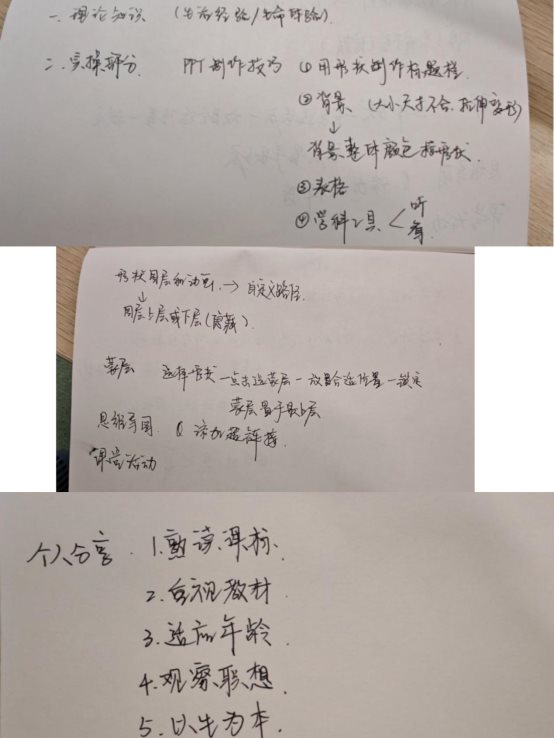 一、理论知识 (生活经验/生命体验)
二、实操部分. PPT制作技巧 ①用形状制作标题框
②背景 (大小尺寸不合,拉伸变形)
↓
背景整体颜色接形状.
③表格
④学科工具 < 听
看
形状图层和动画. → 自定义路径.
↓
图层上层或下层(隐藏).
蒙层 选择形状—点击选蒙层—放置合适位置—锁定
蒙层置于最上层
思维导图. & 添加超链接.
课堂活动
个人分享. 1.熟读课标.
2.合视教材
3.适应年龄.
4.观察联想.
5.以生为本.